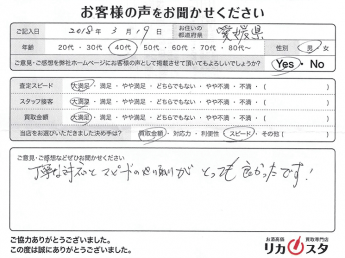 お客様の声をお聞かせください
ご記入日 2018年 3月 19日 お住いの都道府県 愛媛県
年齢 20代・30代・40代・50代・60代・70代・80代〜 性別 男・女
ご意見・ご感想を弊社ホームページにお客様の声として掲載させて頂いてもよろしいでしょうか? Yes・No
査定スピード 大満足・満足・やや満足・どちらでもない・やや不満・不満・( )
スタッフ接客 大満足・満足・やや満足・どちらでもない・やや不満・不満・( )
買取金額 大満足・満足・やや満足・どちらでもない・やや不満・不満・( )
当店をお選びいただきました決め手は? 買取金額・対応力・利便性・スピード・その他( )
ご意見・ご感想などぜひお聞かせください
丁寧な対応とスピードのやり取りが とっても良かったです!
ご協力ありがとうございました。
この度は誠にありがとうございました。
お酒高価買取専門店
リカスタ